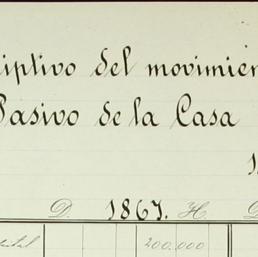 iptivo del movimien
Pasivo de la Casa
1
D. 1867. H. D
200.000